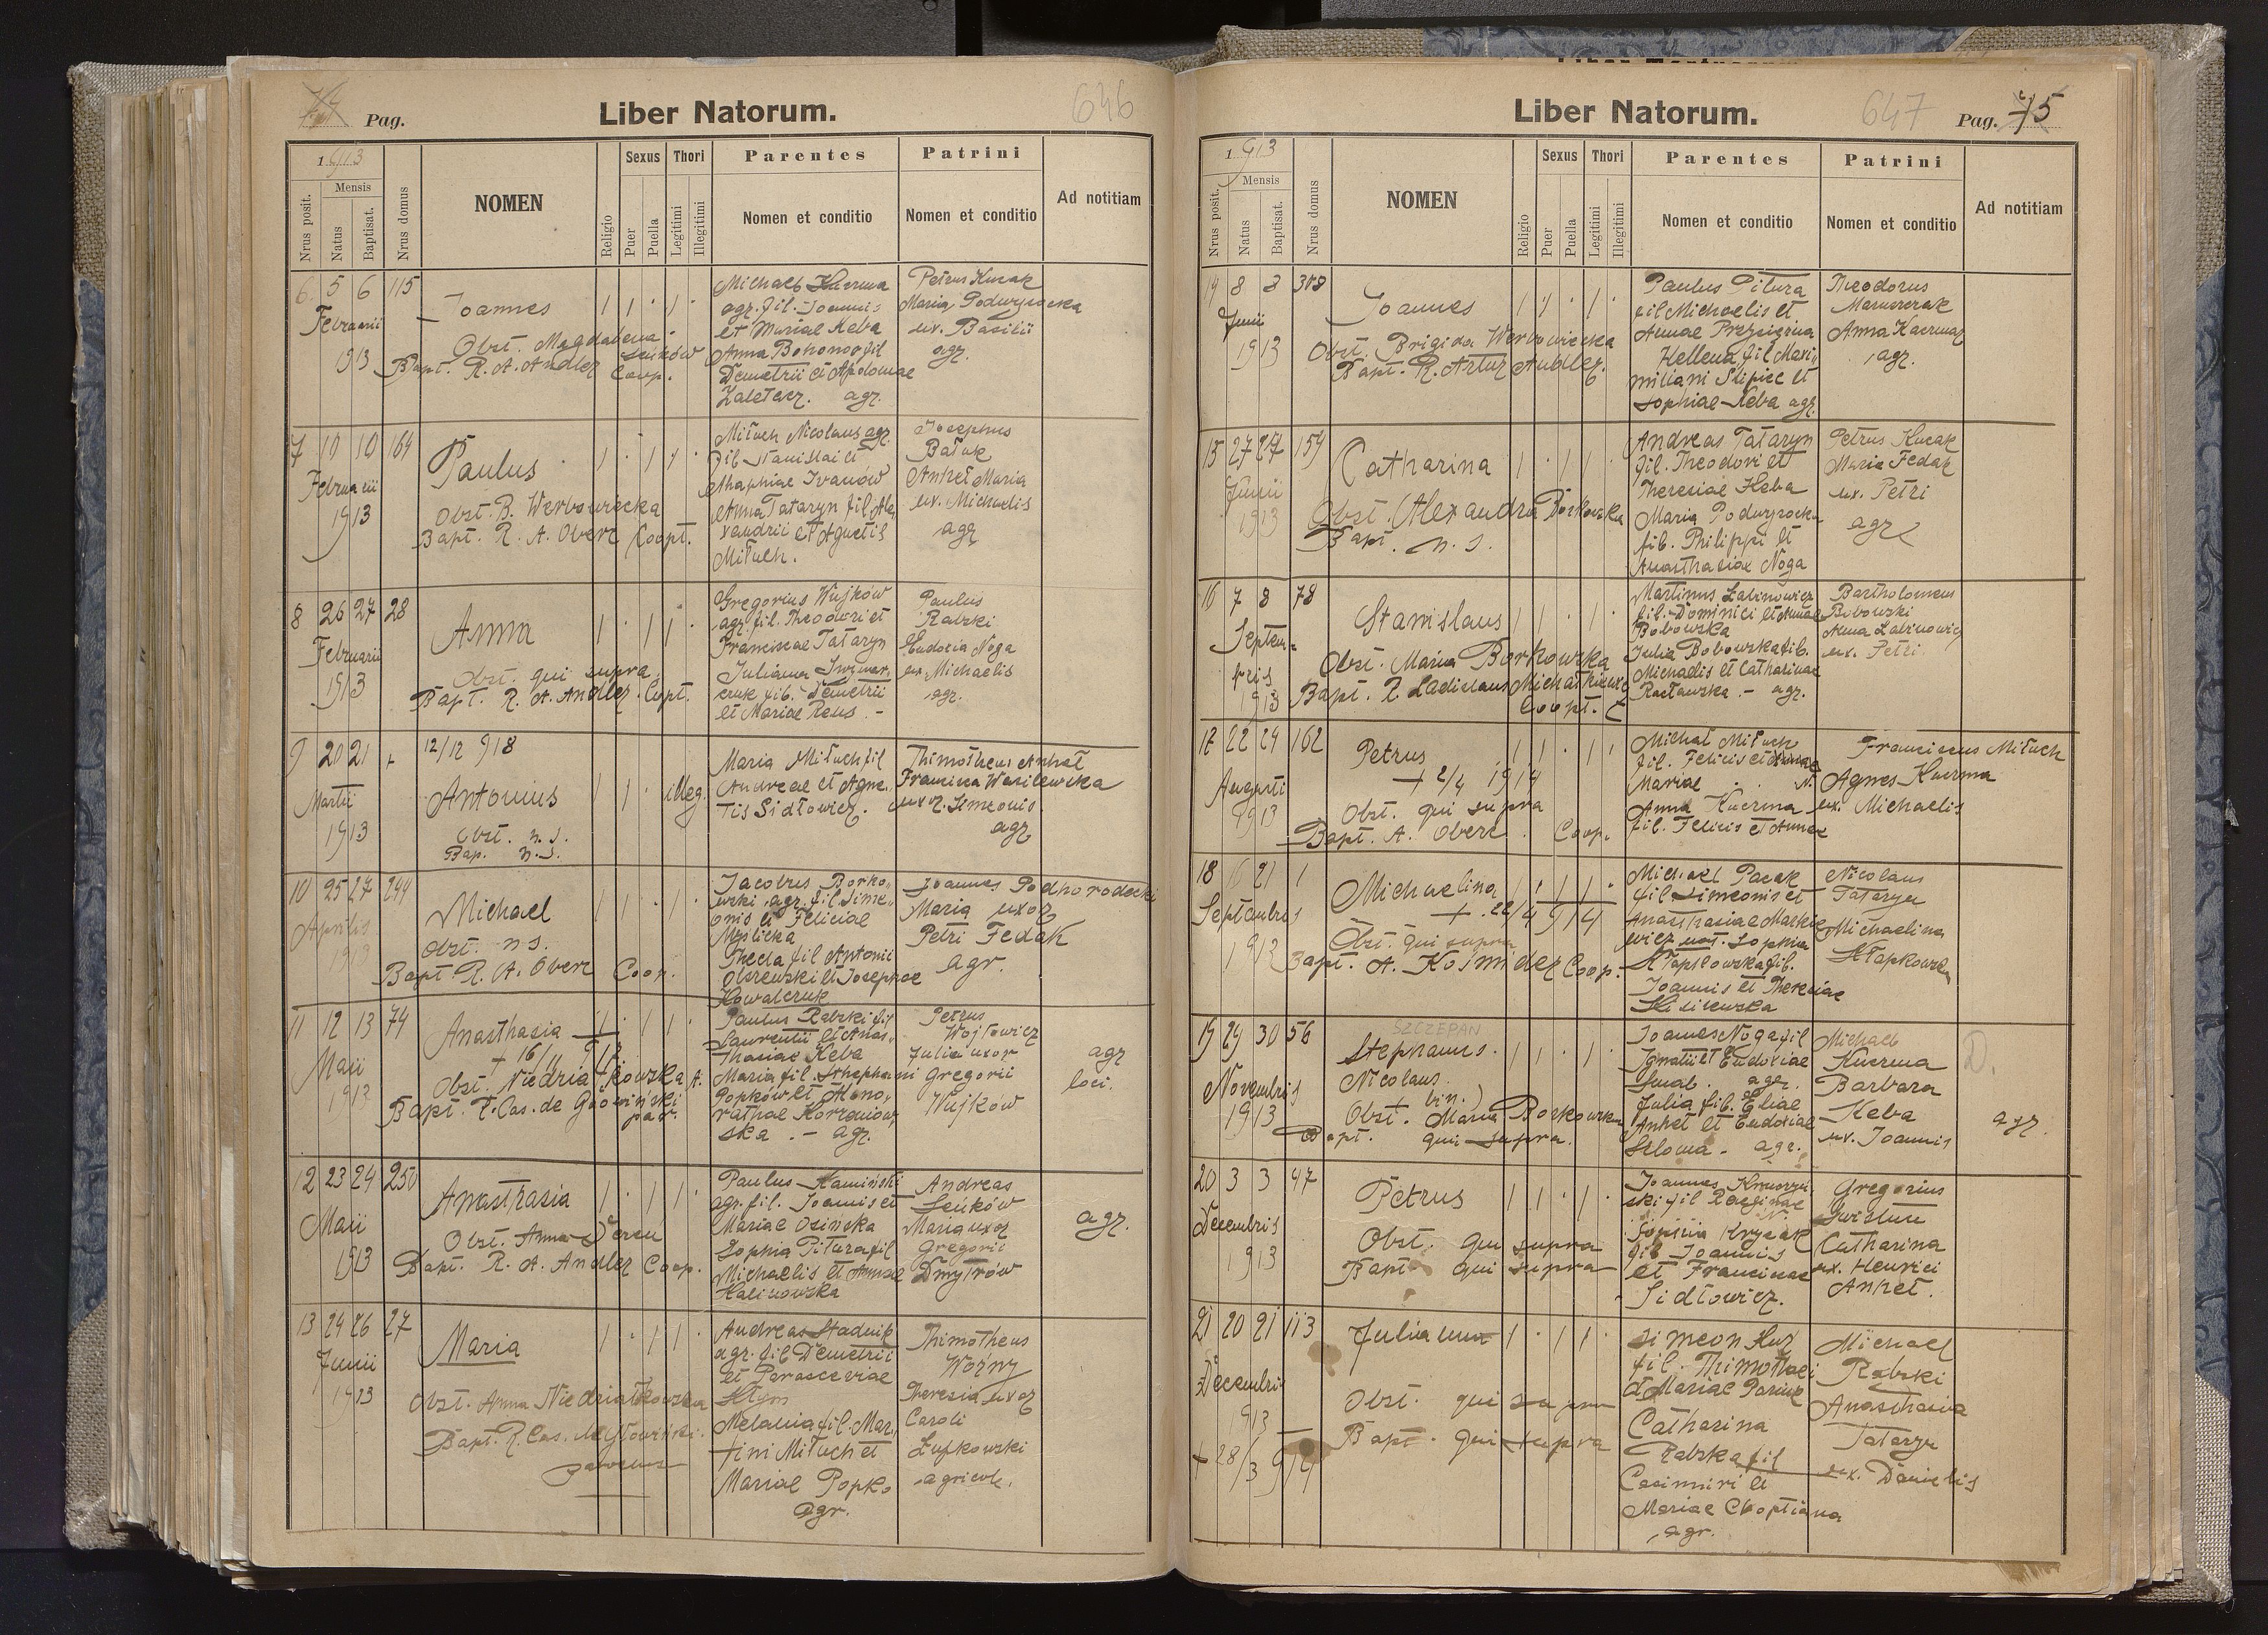 Pag.
Liber Natorum.
646
1913
Nrus posit.
Mensis
Natus
Baptisat.
Nrus domus
NOMEN
Religio
Sexus
Puer
Puella
Thori
Legitimi
Illegitimi
Parentes
Nomen et conditio
Patrini
Nomen et conditio
Ad notitiam
6 5 6 115
Februarii
1913
Joannes
Obst. Magdalena
Senków
Bapt. R. A. Andler Coop.
Michael Kucrma
agr. fil. Joannis
et Mariae Keba
Anna Bohonos fil
Demetrii et Apoloniae
Zaletacz. agr.
Petrus Kucak
Maria Podwysocka
ux. Basilii
agr.
7 10 10 164
Februarii
1913
Paulus
Obst. B. Werbowiecka
Bapt. R. A. Oberc Coopt.
Mituch Nicolaus agr.
fil Stanislai et
Ahaphiae Ivanów
Anna Tataryn fil Ale
xandrii et Agnetis
Mituch.
Josephus
Batuk
Anhel Maria
ux. Michaelis
agr
8 26 27 28
Februarii
1913
Anna
Obst. qui supra
Bapt. R. A. Andler Copt.
Gregorius Wujków
agr. fil. Theodori et
Franciscae Tataryn
Juliana
fil. Demetrii
et Mariae Reus.-
Paulus
Rabski
Eudocia Noga
ux. Michaelis
agr.
9 20 21 +
Martii
1913
12/12 918
Antonius
illeg.
Obst. n. s.
Bap. n. s.
Maria Mituch fil
Andreae et Agne
tis Sidłowicz.
Thimotheus Anhel
Francisca Wasilewska
uxor Simeonis
agr
10 25 27 244
Aprilis
1913
Michael
Obst. n s.
Bapt. R. A. Oberc Coop.
Jacobus Borko
wski agr. fil. Sime
onis et Feliciae
Myślicka
Thecla fil Antonii
Olszewski et Josephae
Kowalczuk
Joannes Podhorodecki
Maria uxor
Petri Fedak
agr.
11 12 13 74
Maii
1913
Anasthasia
+ 16/11 913
Obst. Niedriałkowska A.
Bapt. R. Cas. de Głowiński
par.
Paulus Rabski fil
Laurentii et Anas
thasiae Keba
Maria fil. Sthephani
Popków et Hono
rathae Korzeniow
ska. - agr.
Petrus
Wojtowicz
Julia uxor
Gregorii
Wujków
agr
loci.
12 23 24 250
Maii
1913
Anasthasia
Obst. Anna Dereń
Bapt. R. A. Andler Coop.
Paulus Kamiński
agr. fil. Joannis et
Mariae Osinska
Sophia Pitura fil
Michaelis et Annae
Kalinowska
Andreas
Senków
Maria uxor
Gregorii
Dmytrów
agr.
13 24 26 27
Junii
1913
Maria
Obst. Anna Niedriałkowska
Bapt. R. Cas. de Głowiński.
parochus
Andreas Stadnik
agr. fil Demetrii
et Parasceviae
Styn
Melania fil. Mar
tini Mituch et
Mariae Popko
agr.
Thimotheus
Woźny
Theresia uxor
Caroli
Łupkowski
agricole.
Liber Natorum.
647
Pag. 75
1913
Nrus posit.
Mensis
Natus
Baptisat.
Nrus domus
NOMEN
Religio
Sexus
Puer
Puella
Thori
Legitimi
Illegitimi
Parentes
Nomen et conditio
Patrini
Nomen et conditio
Ad notitiam
14 8 8 308
Junii
1913
Joannes
Obst. Brigida Werbowiecka
Bapt. R. Artur Andller.
Paulus Pitura
fil Michaelis et
Annae
Hellena fil Maxi
miliani Slipiec et
Sophiae Keba agr.
Theodorus
Anna Kacrmar
agr.
15 27 27 159
Junii
1913
Catharina
Obst. Alexandra Borkowska
Bapt. n. s.
Andreas Tataryn
fil. Theodori et
Theresiae Keba
Maria Podwysocka
fil. Philippi et
Anasthasiae Noga
Petrus Kucak
Maria Fedak
ux. Petri
agr
16 7 8 78
Septem-
bris
1913
Stanislaus
Obst. Maria Borkowska
Bapt. R. Ladislaus Michałkiewicz
Coopt.
Martinus Kalinowicz
fil. Dominici et Annae
Bobowska
Julia Bobowska fil.
Michaelis et Catharinae
Racławska - agr.
Bartholomeus
Bobowski
Anna Kalinowicz
ux. Petri
17 22 24 162
Augusti
1913
Petrus
+ 2/4 1914
Obst. qui supra
Bapt. A. Oberc Coop.
Michał Mituch
fil. Felicis et Annae
Mariae N.
Anna Kucrma
fil. Felicis et Annae
Franciscus Mituch
Agnes Kucrma
ux. Michaelis
18 16 21 1
Septembris
1913
Michaelina
+ 22/4 914
Obst. qui supra
Bapt. A. Kosmider Coop.
Michael Pacak
fil Simeonis et
Anasthasiae Maskie
wicz nat. Sophia
Kłapkowska fil.
Joannis et Theresiae
Nicolaus
Tataryn
Michaelina
Kłapkowska
19 29 30 56
Novembris
1913
SZCZEPAN
Stephanus.
Nicolaus
(bin.)
Obst. Maria Borkowska
Bapt. qui supra.
Joannes Noga fil
Ignatii et Eudoxiae
agr.
Julia fil. Eliae
Anhel et Eudoxiae
Szloma - agr.
Michael
Kucrma
Barbara
Keba
ux. Joannis
D.
agr.
20 3 3 47
Decembris
1913
Petrus
Obst. qui supra
Bapt. qui supra
Joannes
ski fil Reginae
N.
Sophia Krycak
fil Joannis
et Franciscae
Sidłowicz.
Gregorius
Swistun
Catharina
ux. Henrici
Anhel.
21 20 21 113
Decembris
1913
+ 28/3 914
Juliana
Obst. qui supra
Bapt. qui supra
Simeon Huz
fil. Thimothei
et Mariae
Catharina
Rabska fil
Casimiri et
Mariae Choptiana
agr.
Michael
Rabski
Anasthasia
Tataryn
ux. Danielis